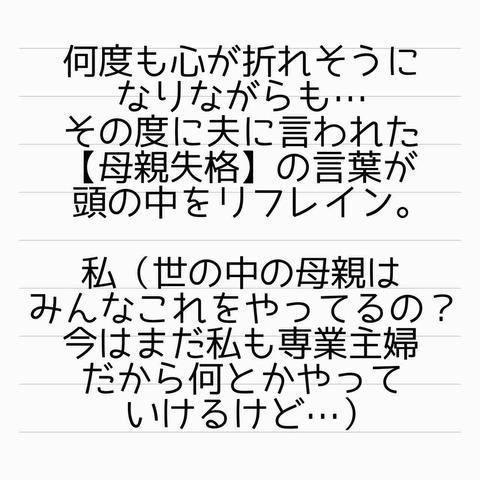 何度も心が折れそうに
なりながらも…
その度に夫に言われた
【母親失格】の言葉が
頭の中をリフレイン。
私（世の中の母親は
みんなこれをやってるの？
今はまだ私も専業主婦
だから何とかやって
いけるけど…）